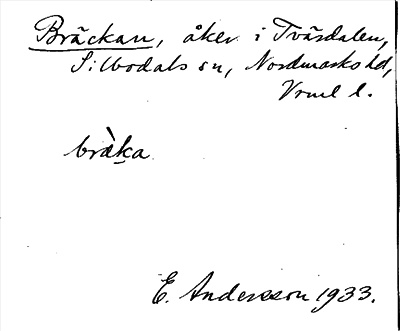 Bräckan, åker i Tvärdalen,
Silbodals sn, Nordmarks hd,
Vrml l.
bræ̀ka
E. Andersson 1933.